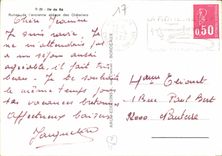 17
Ile de Ré
Ruines de l'ancienne abbaye des Châteliers
Chère Jeanne
Je suis ravie. Je
ne m'attendais pas
à un séjour aussi
agréable, il fait très
beau. Je te souhaite
le même temps pour
tes vacances bretonnes
Affectueux baisers
Jacqueline
0.50
1 Rue Paul Bert
92000 Nanterre